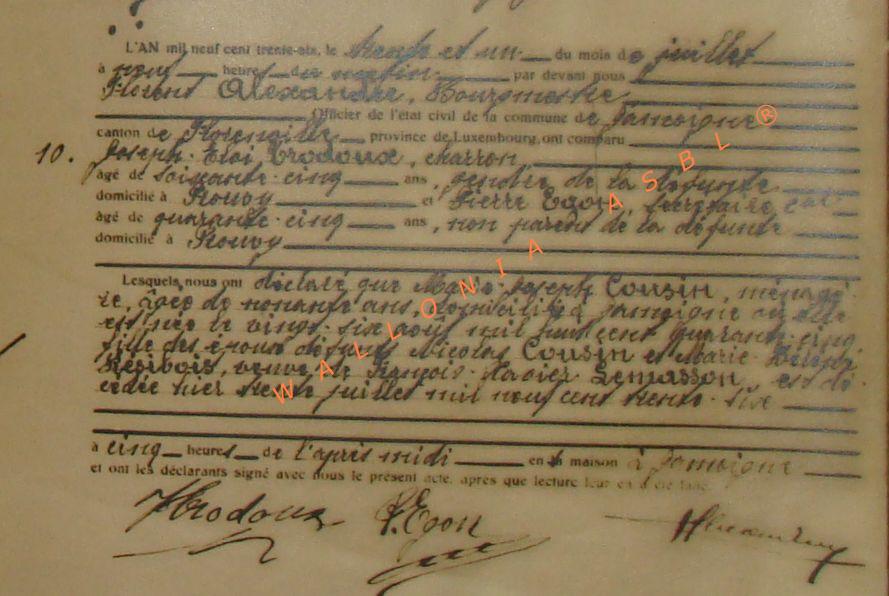 L'AN mil neuf cent trente-six, le trente et un du mois de juillet
à neuf heures du matin par devant nous
Florent Alexandre, Bourgmestre
Officier de l'état civil de la commune de Jamoigne
canton de Florenville province de Luxembourg, ont comparu
10. Joseph-Eloi Trodoux, charron
âgé de soixante-cinq ans, gendre de la défunte
domicilié à Rouvoy et Pierre Egon, secrétaire
âgé de quarante-cinq ans, non parent de la défunte
domicilié à Rouvoy
Lesquels nous ont déclaré que Marie-Joseph Cousin, ménagè-
re, âgée de nonante ans, domiciliée à Jamoigne où elle
est née le vingt-six août mil huit cent quarante-cinq
fille des époux défunts Nicolas Cousin et Marie-Thérèse
Résibois, veuve de François-Xavier Lemasson, est dé-
cédée hier trente juillet mil neuf cent trente-six
à cinq heures de l'après midi en sa maison à Jamoigne
et ont les déclarants signé avec nous le présent acte, après que lecture leur en a été faite.
Trodoux P. Egon
WALLONIA ASBL ®